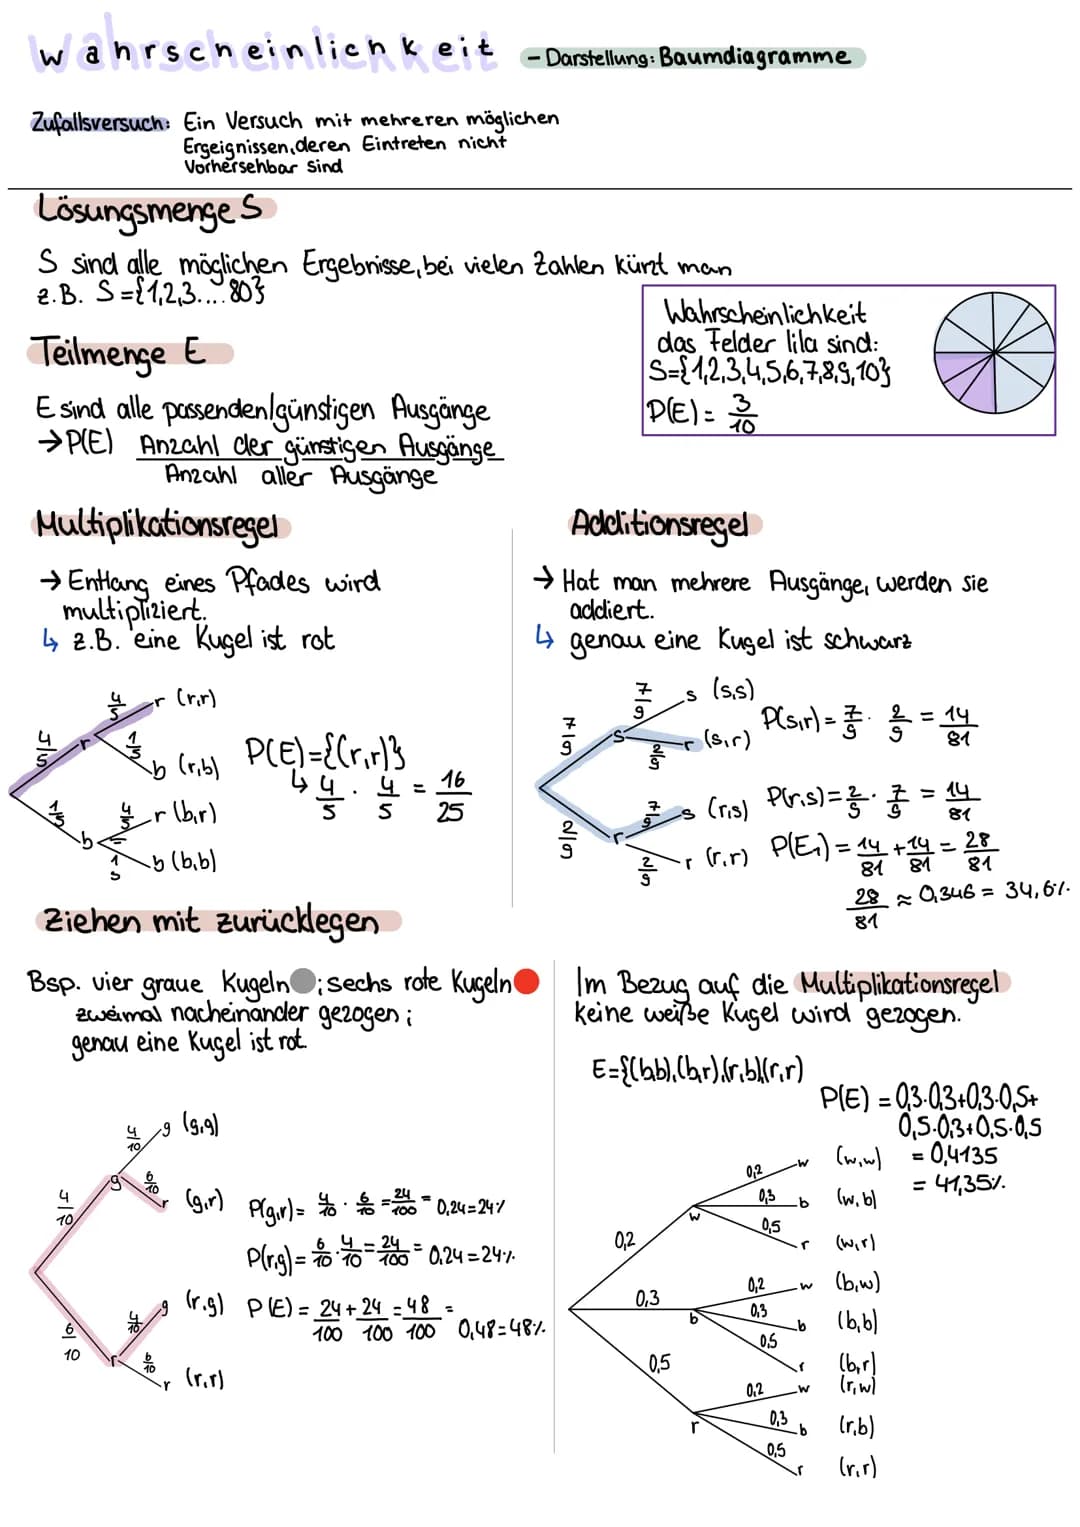 Wahrscheinlichkeit - Darstellung: Baumdiagramme
Zufallsversuch: Ein Versuch mit mehreren möglichen
Ergeignissen, deren Eintreten nicht
Vorhersehbar sind
Lösungsmenge S
S sind alle möglichen Ergebnisse, bei vielen Zahlen kürzt man
z.B. S={1,2,3....80}
Wahrscheinlichkeit
das Felder lila sind:
S={1,2,3,4,5,6,7,8,9,10}
P(E) = 3/10
Teilmenge E
E sind alle passenden/günstigen Ausgänge
→P(E) Anzahl der günstigen Ausgänge
Anzahl aller Ausgänge
Multiplikationsregel
→ Entlang eines Pfades wird
multipliziert.
↳ z.B. eine Kugel ist rot
4/5 r (r,r)
4/5 r 1/5 b (r,b)
1/5 b 4/5 r (b,r)
1/5 b (b,b)
P(E)={(r,r)}
↳ 4/5 · 4/5 = 16/25
Additionsregel
→ Hat man mehrere Ausgänge, werden sie
addiert.
↳ genau eine Kugel ist schwarz
7/9 s (s,s)
7/9 s 2/9 r (s,r) P(s,r) = 7/9 · 2/9 = 14/81
2/9 r 7/9 s (r,s) P(r,s) = 2/9 · 7/9 = 14/81
2/9 r (r,r) P(E₁) = 14/81 + 14/81 = 28/81
28/81 ≈ 0,346 = 34,6%
Ziehen mit zurücklegen
Bsp. vier graue Kugeln ; sechs rote Kugeln
zweimal nacheinander gezogen ;
genau eine Kugel ist rot.
4/10 g (g,g)
4/10 g 6/10 r (g,r) P(g,r) = 4/10 · 6/10 = 24/100 = 0,24=24%
P(r,g) = 6/10 · 4/10 = 24/100 = 0,24=24%
6/10 r 4/10 g (r,g) P(E) = 24/100 + 24/100 = 48/100 = 0,48=48%
6/10 r (r,r)
Im Bezug auf die Multiplikationsregel
keine weiße Kugel wird gezogen.
E={(b,b),(b,r),(r,b)(r,r)
P(E) = 0,3·0,3+0,3·0,5+
0,5·0,3+0,5·0,5
= 0,4135
= 41,35%
0,2 w (w,w)
0,2 w 0,3 b (w,b)
0,5 r (w,r)
0,2 w (b,w)
0,3 b 0,3 b (b,b)
0,5 r (b,r)
0,2 w (r,w)
0,5 r 0,3 b (r,b)
0,5 r (r,r)